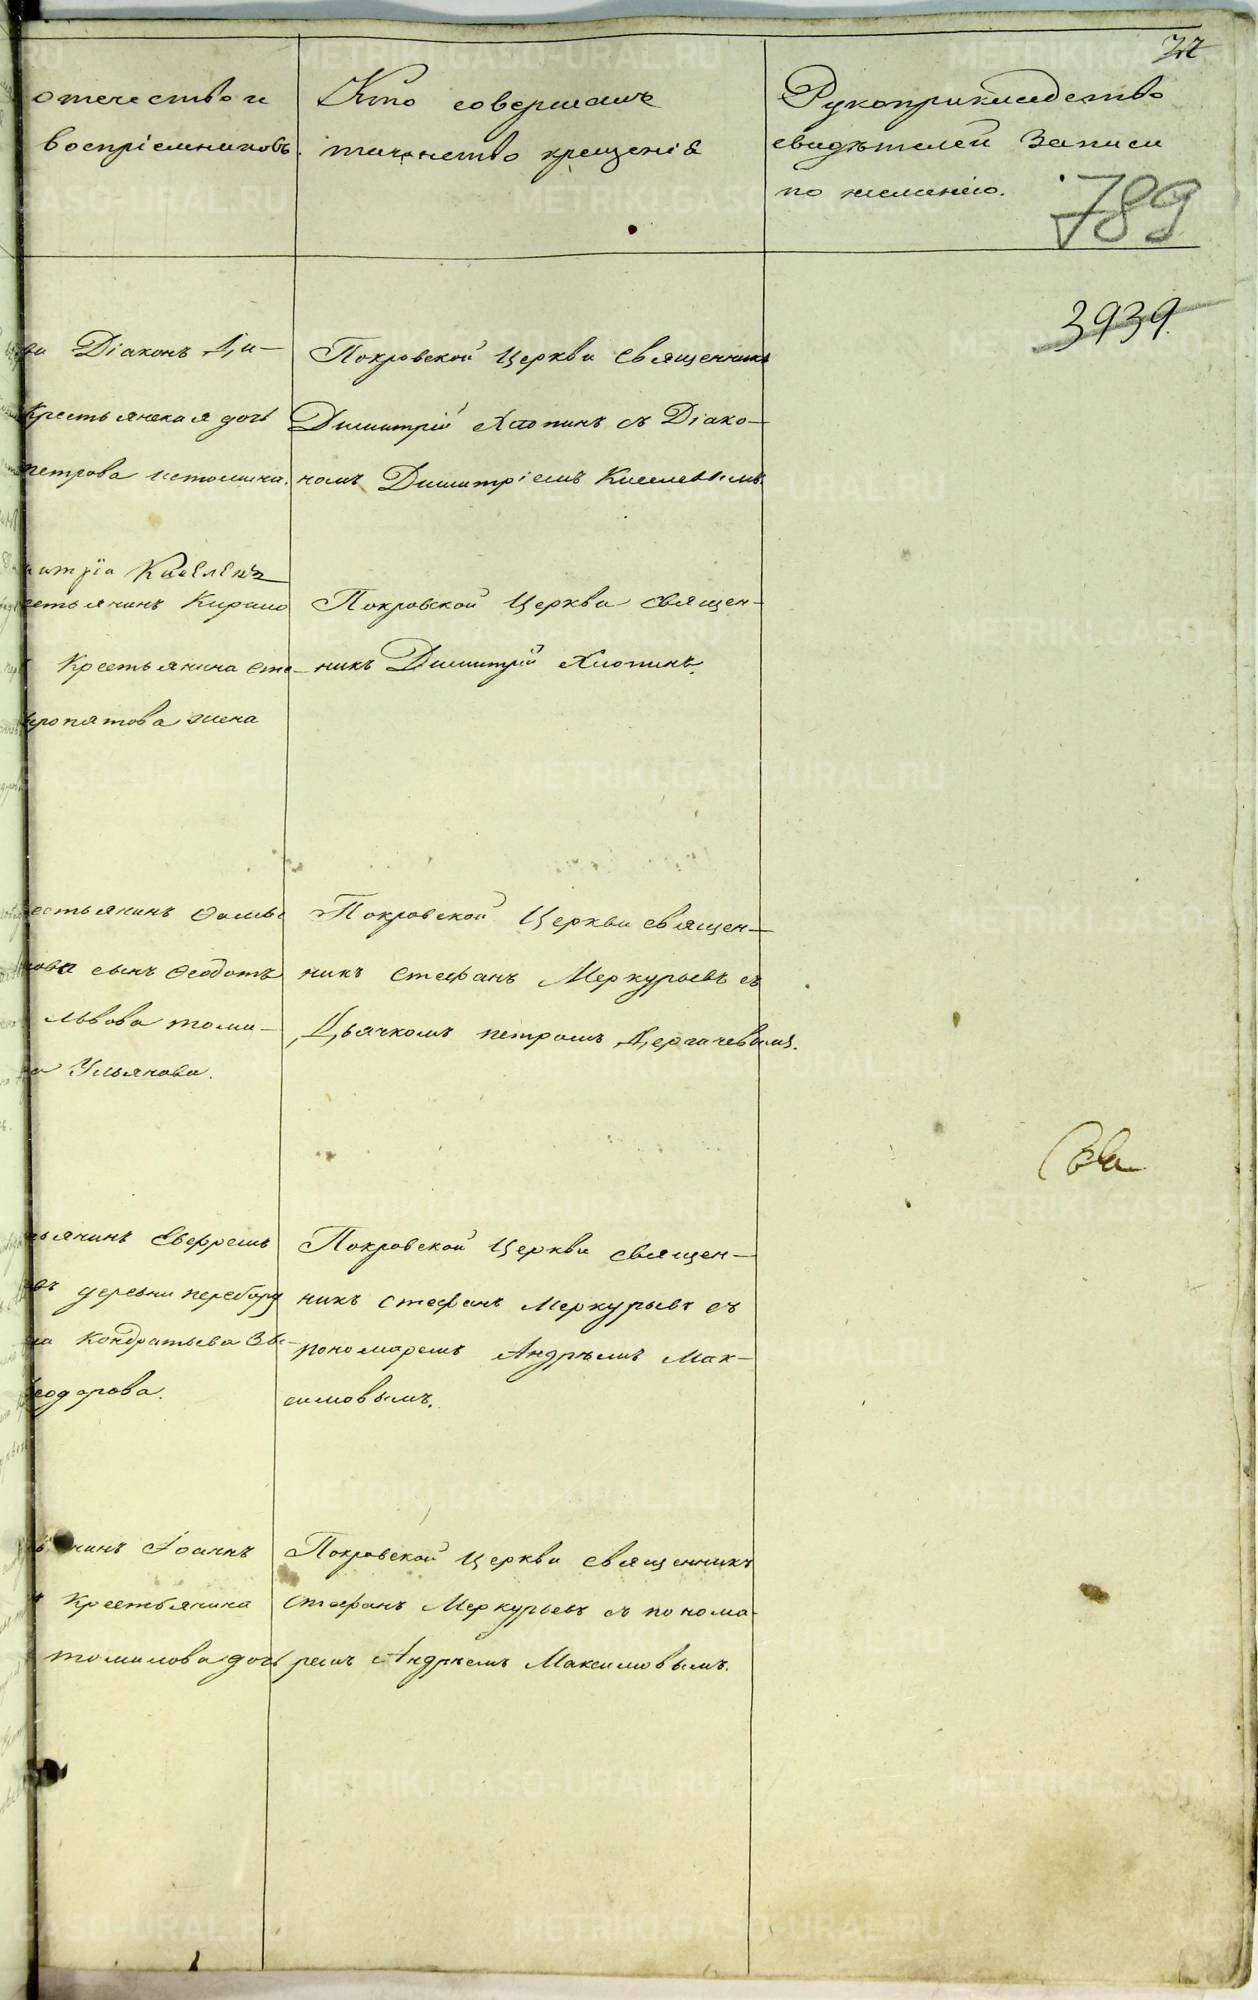 отечество и
воспріемниковъ.
Кто совершалъ
таинство крещенія
Рукоприкладство
свидѣтелей записи
по желанію.
789
3939
Діаконъ Ди-
Крестьянская дочь
петрова истомина.
Покровской Церкви Священникъ
Димитрій Хлопинъ съ Діако-
номъ Димитріемъ Киселевымъ.
Киселевъ
Кирило
Крестьянина Сте-
жена
Покровской Церкви Священ-
никъ Димитрій Хлопинъ.
сынъ Ѳеодотъ
львова томи-
Ульянова.
Покровской Церкви Священ-
никъ Стефанъ Меркурьевъ съ
Дьячкомъ петромъ Дергачевымъ.
Ва
деревни перебору
Кондратьева
Покровской Церкви Священ-
никъ Стефанъ Меркурьевъ съ
пономаремъ Андрѣемъ Мак-
симовымъ.
Іоаннъ
Крестьянина
томилова дочь
Покровской Церкви Священникъ
Стефанъ Меркурьевъ съ понома-
ремъ Андрѣемъ Максимовымъ.
METRIKI.GASO-URAL.RU